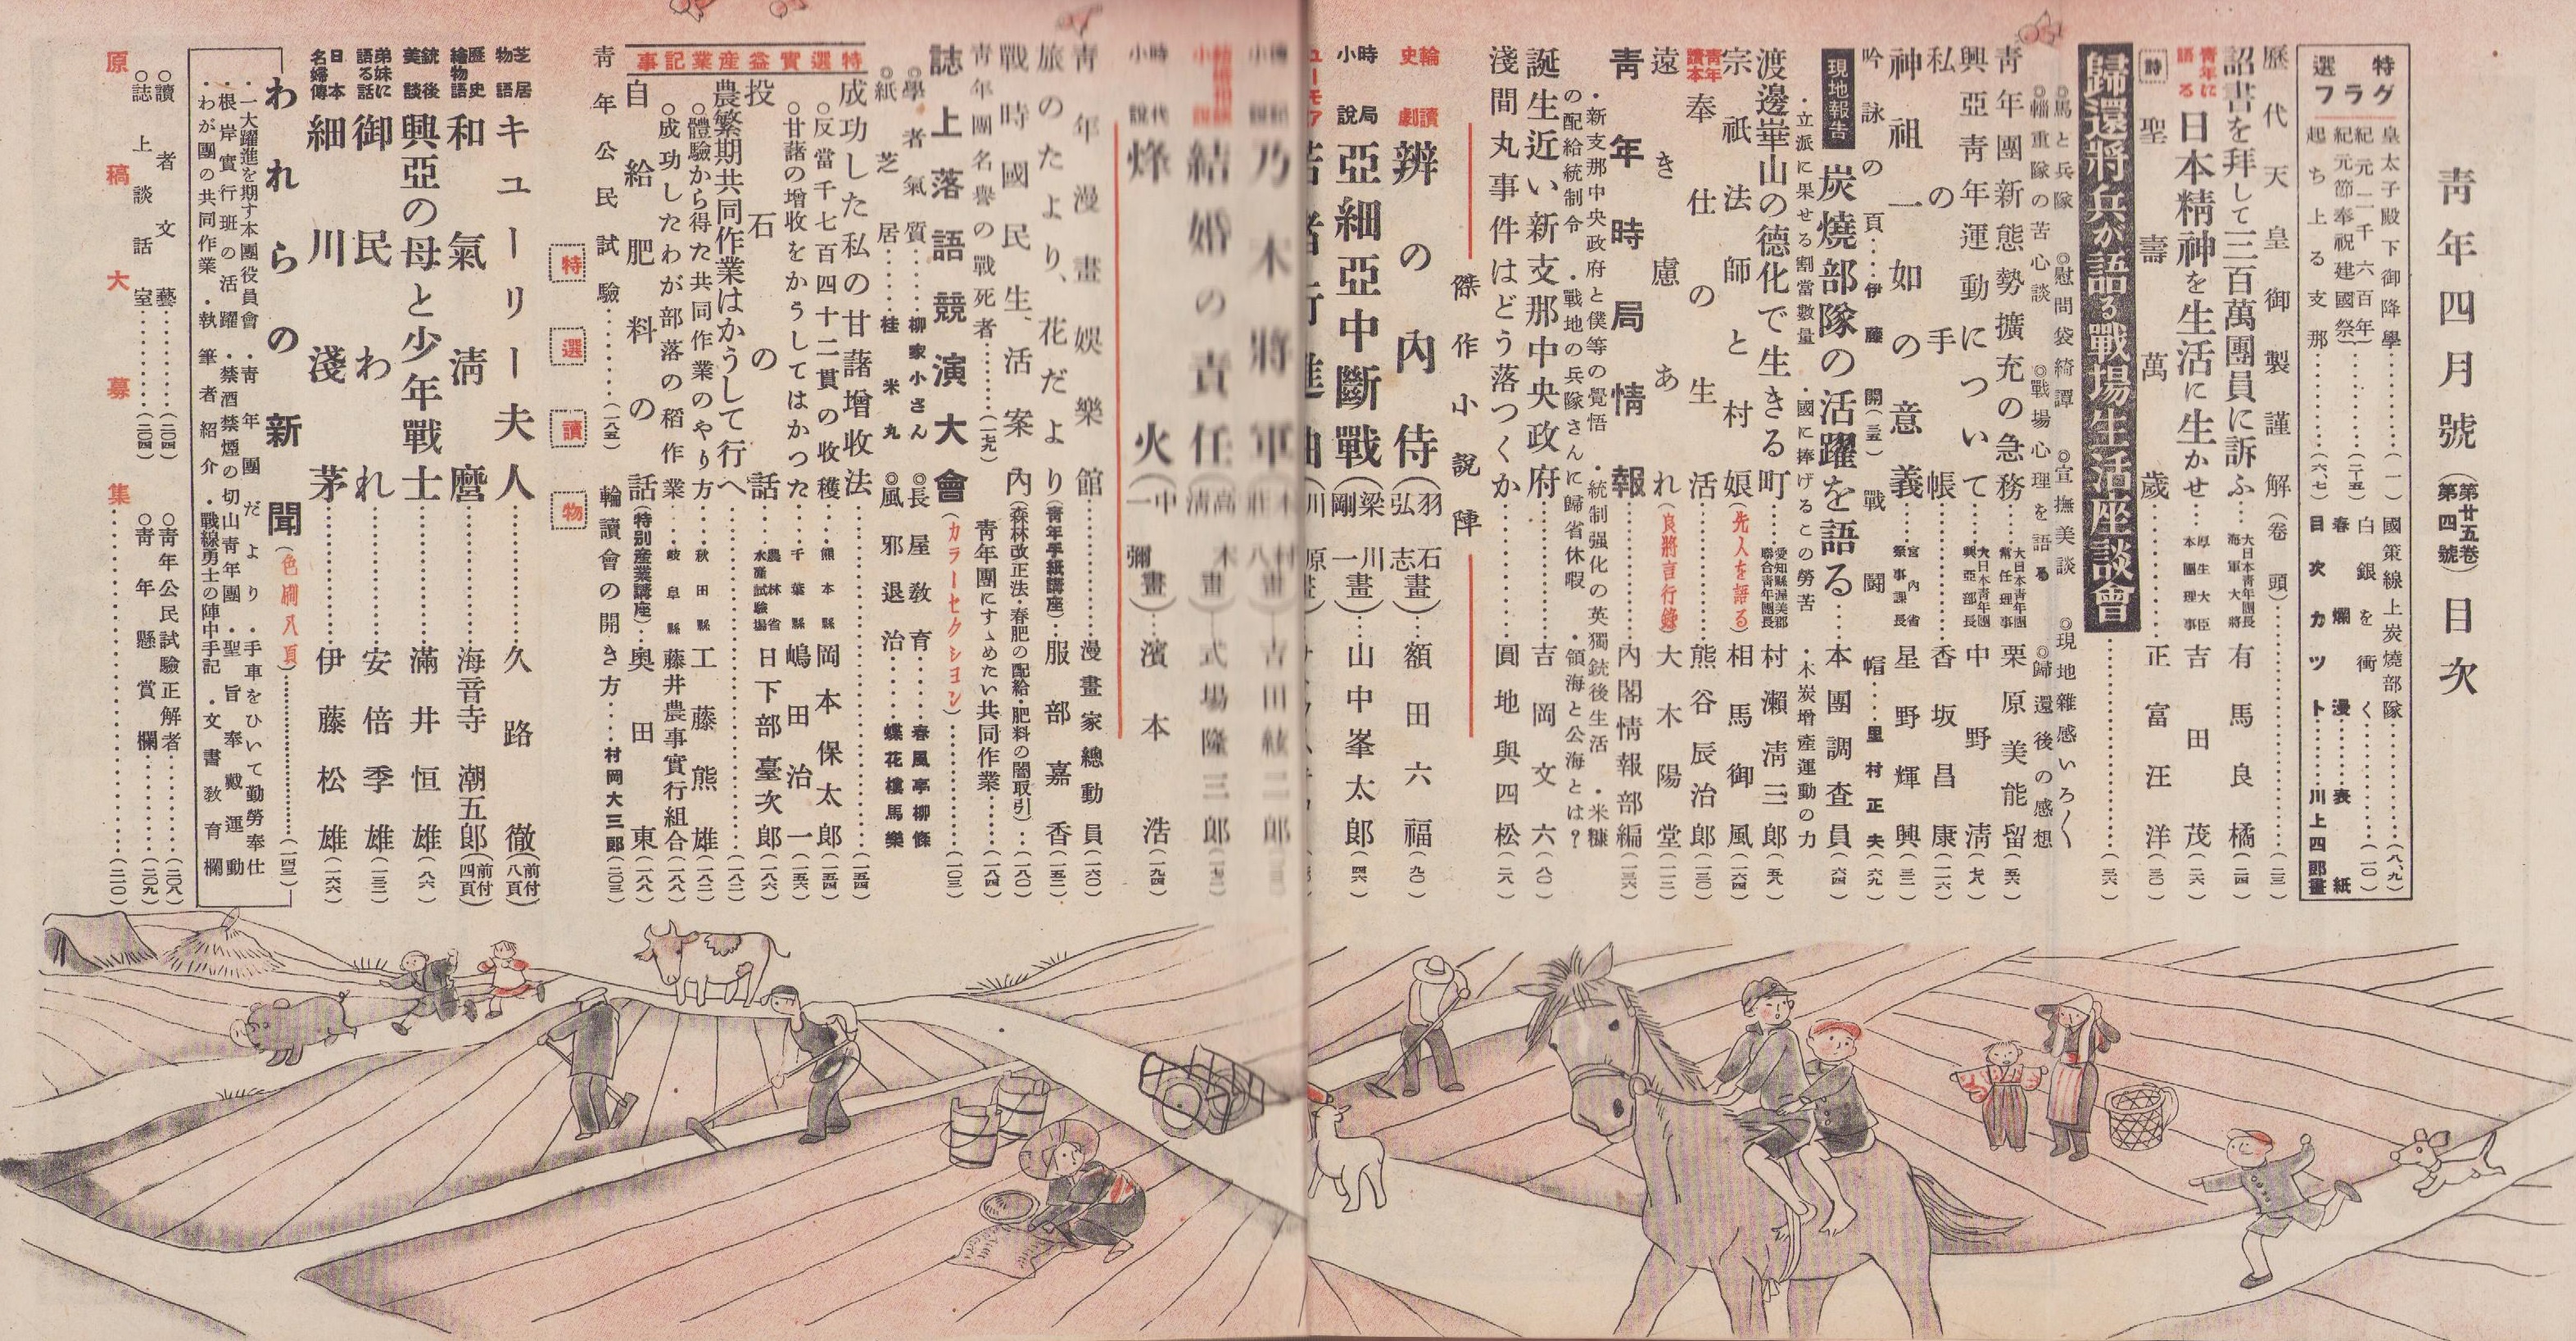 青年四月號(第廿五卷第四號)目次
特選グラフ
皇太子殿下御降學……(一)
紀元二千六百年……(二・五)
紀元節奉祝建國祭
起ち上る支那……(六、七)
國策線上炭燒部隊……(八、九)
白銀を衝く……(一〇)
春爛漫……表紙
目次カツト……川上四郎畫
歷代天皇御製謹解(卷頭)……(二三)
詔書を拜して三百萬團員に訴ふ…大日本青年團長海軍大將 有馬良橘(二四)
青年に語る 日本精神を生活に生かせ…厚生大臣本團理事 吉田茂(二六)
詩 聖壽萬歲……正富汪洋(三〇)
歸還將兵が語る戰場生活座談會……(三六)
◎馬と兵隊 ◎慰問袋綺譚 ◎宣撫美談 ◎現地雜感いろ〱
◎輜重隊の苦心談 ◎戰場心理を語る ◎歸還後の感想
青年團新態勢擴充の急務…大日本青年團常任理事 栗原美能留(五六)
興亞靑年運動について…大日本青年團興亞部長 中野清(七八)
私の手帳……香坂昌康(一一六)
神祖一如の意義…宮內省祭事課長 星野輝興(三二)
吟詠の頁…伊藤開(三五) 戰鬪帽…里村正夫(六九)
現地報告 炭燒部隊の活躍を語る……本團調査員(六四)
・立派に果せる割當數量 ・國に捧げるこの勞苦 ・木炭增產運動の力
渡邊崋山の德化で生きる町…愛知縣渥美郡聯合青年團長 村瀨淸三郎(五八)
宗祇法師と村娘(先人を語る)相馬御風(一六四)
青年讀本 奉仕の生活……熊谷辰治郎(一三〇)
遠き慮あれ(良將言行錄)大木陽堂(一一二)
青年時局情報 內閣情報部編(一三六)
・新支那中央政府と僕等の覺悟 ・統制强化の英獨銃後生活 ・米糠
の配給統制令 ・戰地の兵隊さんに歸省休暇 ・領海と公海とは?
誕生近い新支那中央政府……吉岡文六(八〇)
淺間丸事件はどう落つくか……圓地與四松(二八)
傑作小說陣
輪讀史劇 辨の內侍(羽石弘志畫)…額田六福(九〇)
時局小說 亞細亞中斷戰(梁川剛一畫)…山中峯太郎(四六)
乃木將軍
結婚の責任…式場隆三郎
時代小說 烽火(中一彌畫)…濱本浩(一九四)
青年漫畫娛樂館……漫畫家總動員(一六〇)
旅のたより、花だより(青年手紙講座)…服部嘉香(一五二)
戰時國民生活案內(森林改正法・春肥の配給・肥料の闇取引)…(一八〇)
青年團名譽の戰死者……(一七九) 青年團にすゝめたい共同作業……(一八四)
誌上落語競演大會(カラーセクシヨン)……(一〇三)
◎學者氣質……柳家小さん ◎長屋敎育……春風亭柳條
◎紙芝居……桂米丸 ◎風邪退治……蝶花樓馬樂
特選實益產業記事
成功した私の甘藷增收法……(一五四)
◎反當千七百四十二貫の收穫…熊本縣 岡本保太郎(一五四)
◎甘藷の增收をかうしてはかつた…千葉縣 嶋田治一(一五六)
投石の話…農林省水產試驗場 日下部臺次郎(一八六)
農繁期共同作業はかうして行へ……(一八二)
◎體驗から得た共同作業のやり方…秋田縣 工藤熊雄(一八二)
◎成功したわが部落の稻作業…岐阜縣 藤井農事實行組合(一八八)
自給肥料の話(特別產業講座)…奥田東(一八八)
靑年公民試驗……(一八五) 輪讀會の開き方……村岡大三郎(二〇三)
特選讀物
芝居物語 キユーリー夫人……久路徹(前付八頁)
歷史繪物語 和氣淸麿……海音寺潮五郎(前付四頁)
銃後美談 興亞の母と少年戰士……滿井恒雄(八六)
弟妹に語る話 御民われ……安倍季雄(一三二)
日本名婦傳 細川淺茅……伊藤松雄(一六六)
われらの新聞(色刷八頁)……(一四三)
・一大躍進を期す本團役員會 ・青年團だより ・手車をひいて勤勞奉仕
・根岸實行班の活躍 ・禁酒禁煙の切山靑年團 ・聖旨奉戴運動
・わが團の共同作業 ・執筆者紹介 ・戰線勇士の陣中手記 ・文書敎育欄
◎讀者文藝……(二〇四) ◎青年公民試驗正解者……(二〇八)
◎誌上談話室……(二〇四) ◎靑年懸賞欄……(二〇九)
原稿大募集……(二一〇)